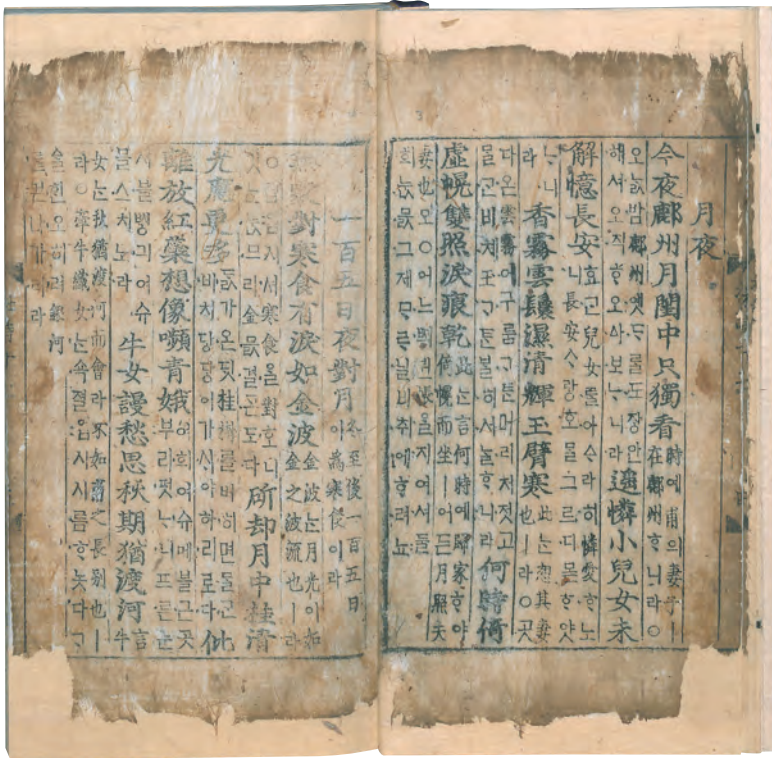 月夜
今夜鄜州月閨中只獨看 時예甫의妻子ㅣ在鄜州ᄒᆞ니라○
오ᄂᆞᆳ밤鄜州ㅅᄃᆞᄅᆞᆯ도장안해셔오직ᄒᆞ오ᅀᅡ보ᄂᆞ니라 遙憐小兒女未
解憶長安 효ᄀᆞᆫ兒女ᄅᆞᆯ아ᅀᆞ라히憐愛ᄒᆞ노니長安ᄉᆞ랑호ᄆᆞᆯ그르디몯ᄒᆞ얏
ᄂᆞ니라 香霧雲鬟濕清輝玉臂寒 此ᄂᆞᆫ想其妻也ㅣ라○곳
다온雲霧에구룸ᄀᆞᄐᆞᆫ머리저젓고ᄆᆞᆯᄀᆞᆫ비체玉ᄀᆞᄐᆞᆫᄇᆞᆯ히서늘ᄒᆞ니라 何時倚
虛幌雙照淚痕乾 此ᄂᆞᆫ言何時예歸家ᄒᆞ야倚幌而坐ㅣ어든月照夫
妻也오○어느ᄢᅴ뷘帳ᄋᆞᆯ지여셔둘희눖므를그제ᄆᆞᄅᆞ닐비취에ᄒᆞ려뇨
一百五日夜對月 冬至後一百五日이為寒食이라
對寒食有淚如金波 金波ᄂᆞᆫ月光이如金之波流也ㅣ라
○업시셔寒食을對호니눖므리金ㅅ믌결ᄀᆞᆮ도다 斫却月中桂清
光應更多 ᄃᆞᆯ가온ᄃᆡᆺ桂樹를버히면ᄆᆞᆯᄀᆞᆫ비치당당이가ᄉᆡ야하리로다 仳
離放紅蘂想像嚬青娥 여희여슈메블근곳부리펫ᄂᆞ니프른눈
서블ᄢᅵᆼ긔여슈믈스치노라 牛女謾愁思秋期猶渡河 言牛
女ᄂᆞᆫ秋猶渡河而會라不如甫之長別也ㅣ라○牽牛織女ᄂᆞᆫ쇽졀업시시름ᄒᆞ놋다ᄀᆞ
ᄋᆞᆯᄒᆡᆫ오히려銀河ᄅᆞᆯ건나가리라